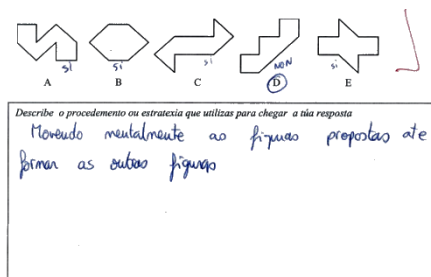 si si si NON si
A B C D E
Describe o procedemento ou estratexia que utilizas para chegar a túa resposta
Movendo mentalmente as figuras propostas ate
formar as outras figuras